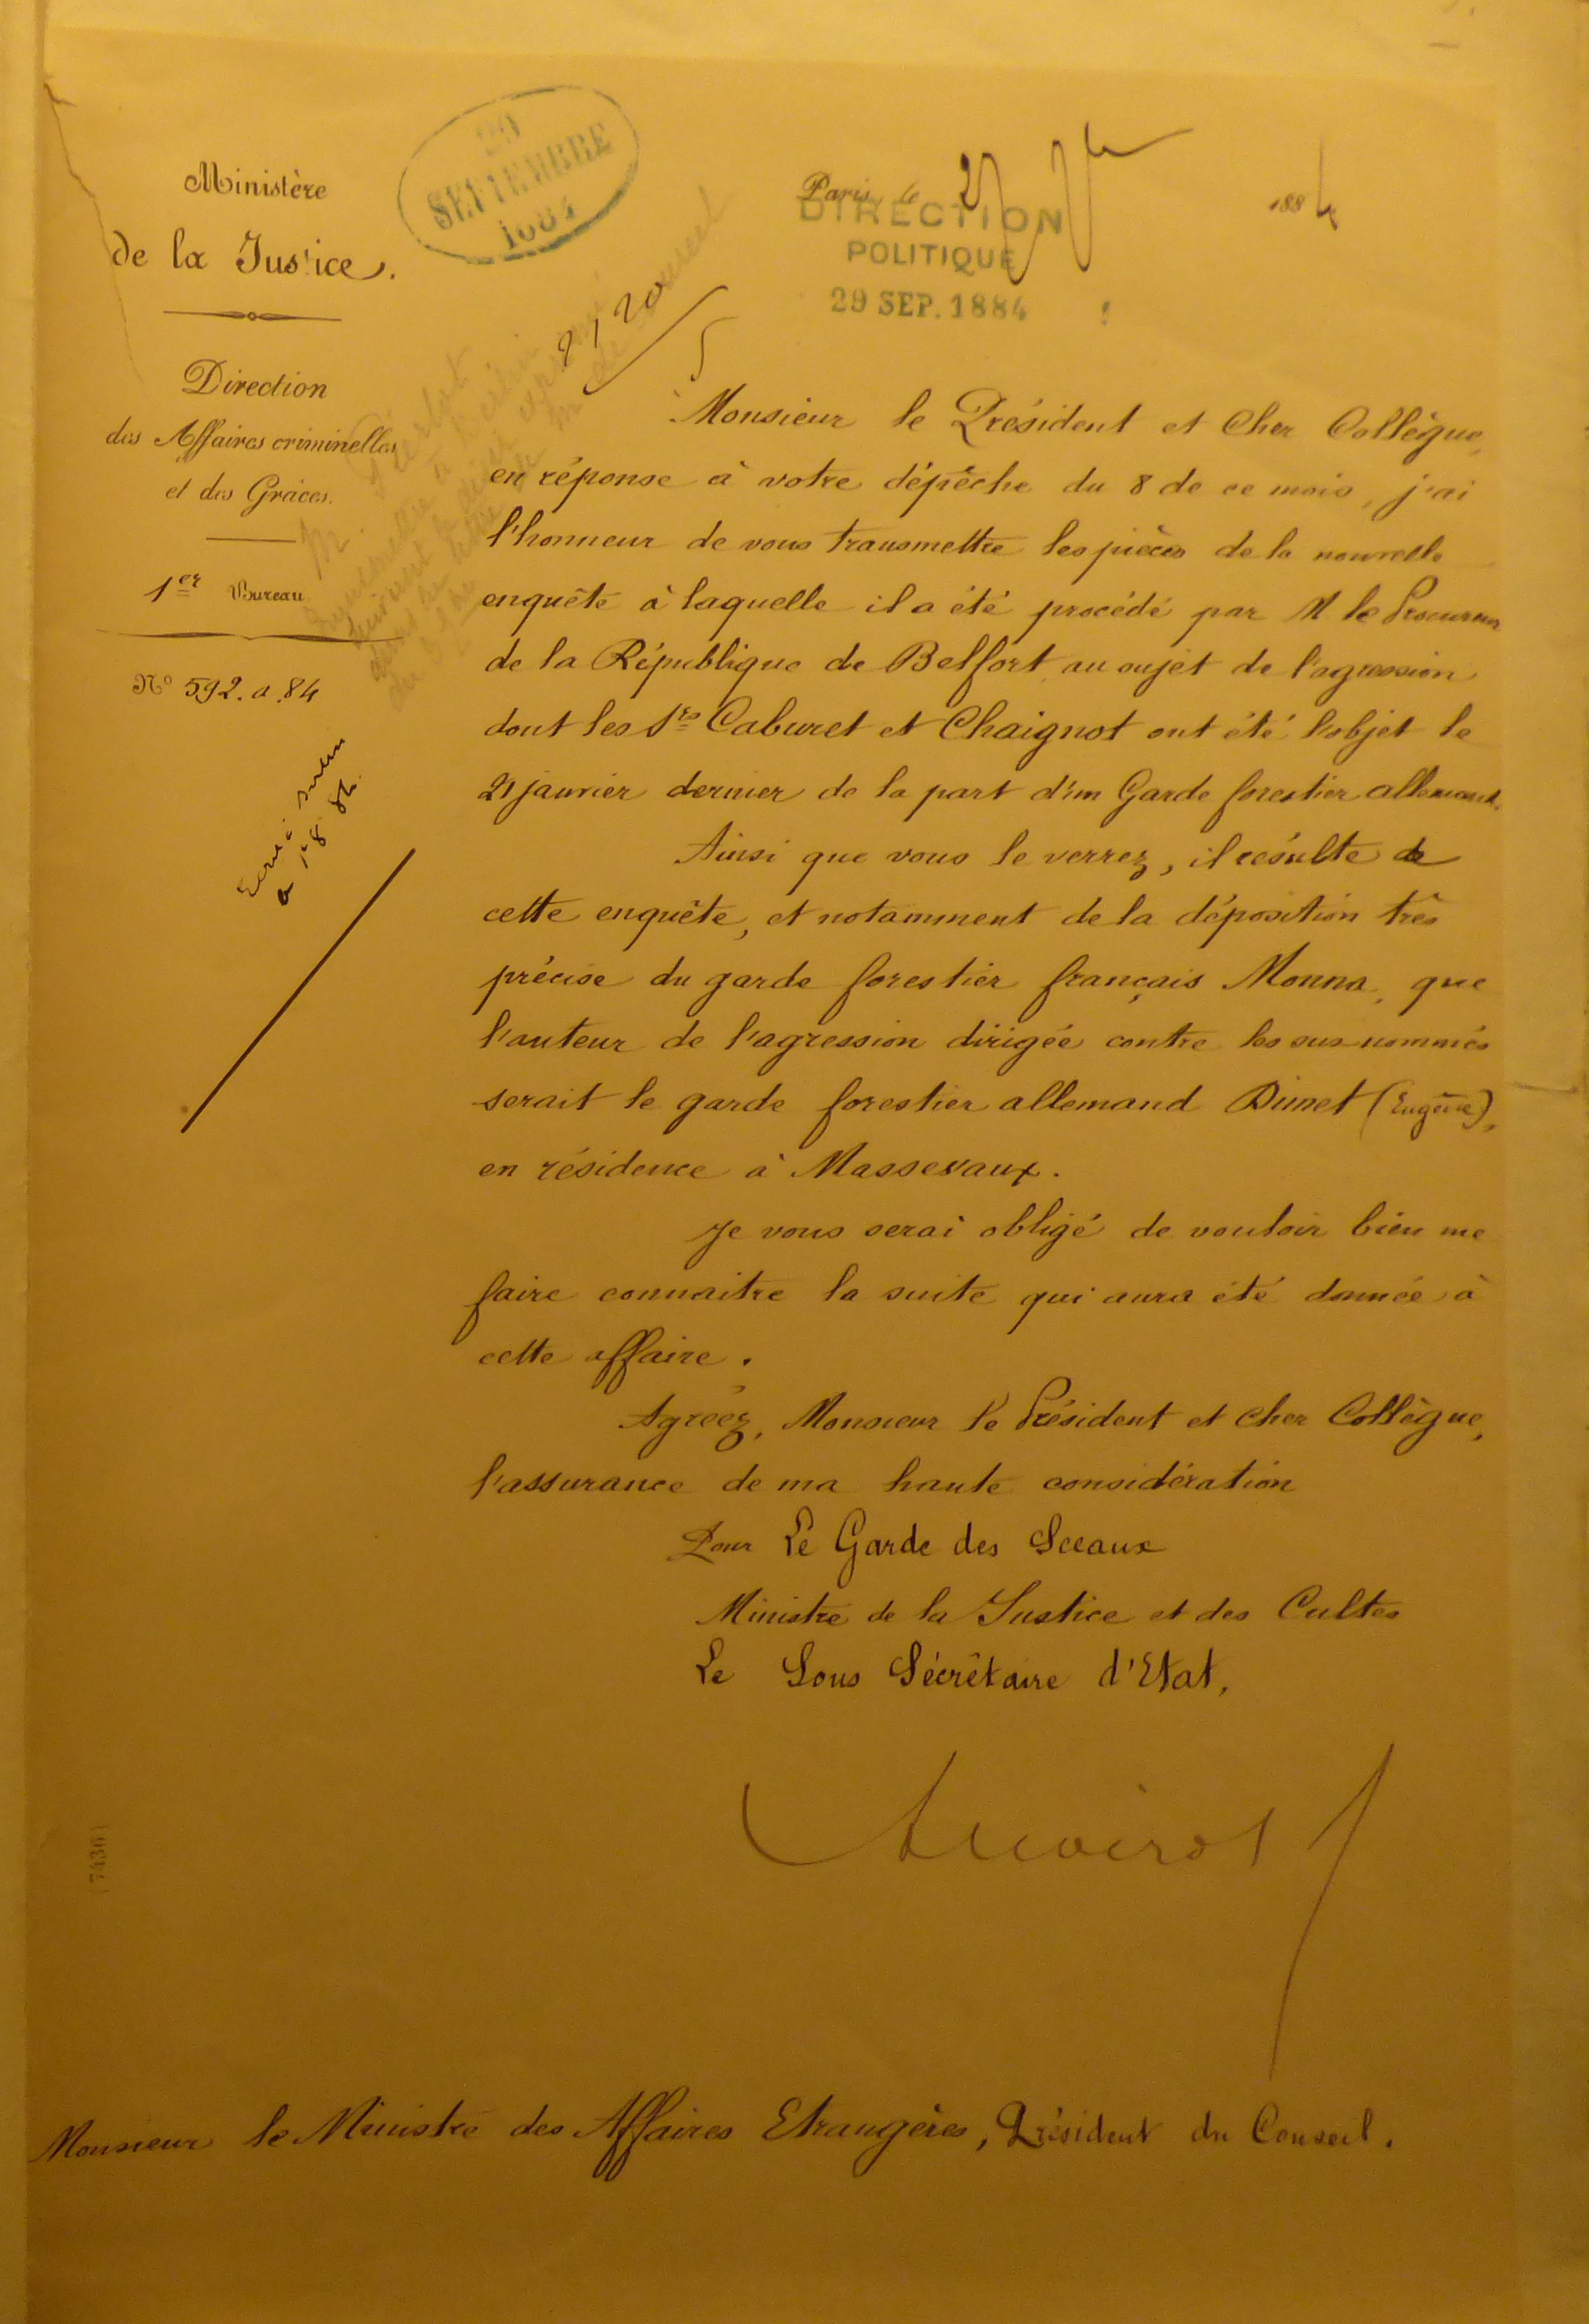 Ministère
de la Justice.
Direction
des Affaires criminelles
et des Grâces.
1er Bureau
No 592. a. 84
SEPTEMBRE
1884
Paris, le 188 4
DIRECTION
POLITIQUE
29 SEP. 1884
Monsieur le Président et Cher Collègue,
en réponse à votre dépêche du 8 de ce mois, j'ai
l'honneur de vous transmettre les pièces de la nouvelle
enquête à laquelle il a été procédé par M le Procureur
de la République de Belfort, au sujet de l'agression
dont les Srs Caburet et Chaignot ont été l'objet le
21 janvier dernier de la part d'un Garde forestier allemand.
Ainsi que vous le verrez, il résulte de
cette enquête, et notamment de la déposition très
précise du garde forestier français Monna, que
l'auteur de l'agression dirigée contre les sus-nommés
serait le garde forestier allemand Dimet (Eugène),
en résidence à Massevaux.
Je vous serai obligé de vouloir bien me
faire connaitre la suite qui aura été donnée à
cette affaire.
Agréez, Monsieur le Président et Cher Collègue,
l'assurance de ma haute considération
Pour Le Garde des Sceaux
Ministre de la Justice et des Cultes
Le Sous Sécrétaire d'Etat,
Monsieur le Ministre des Affaires Etrangères, Président du Conseil.
(7436)